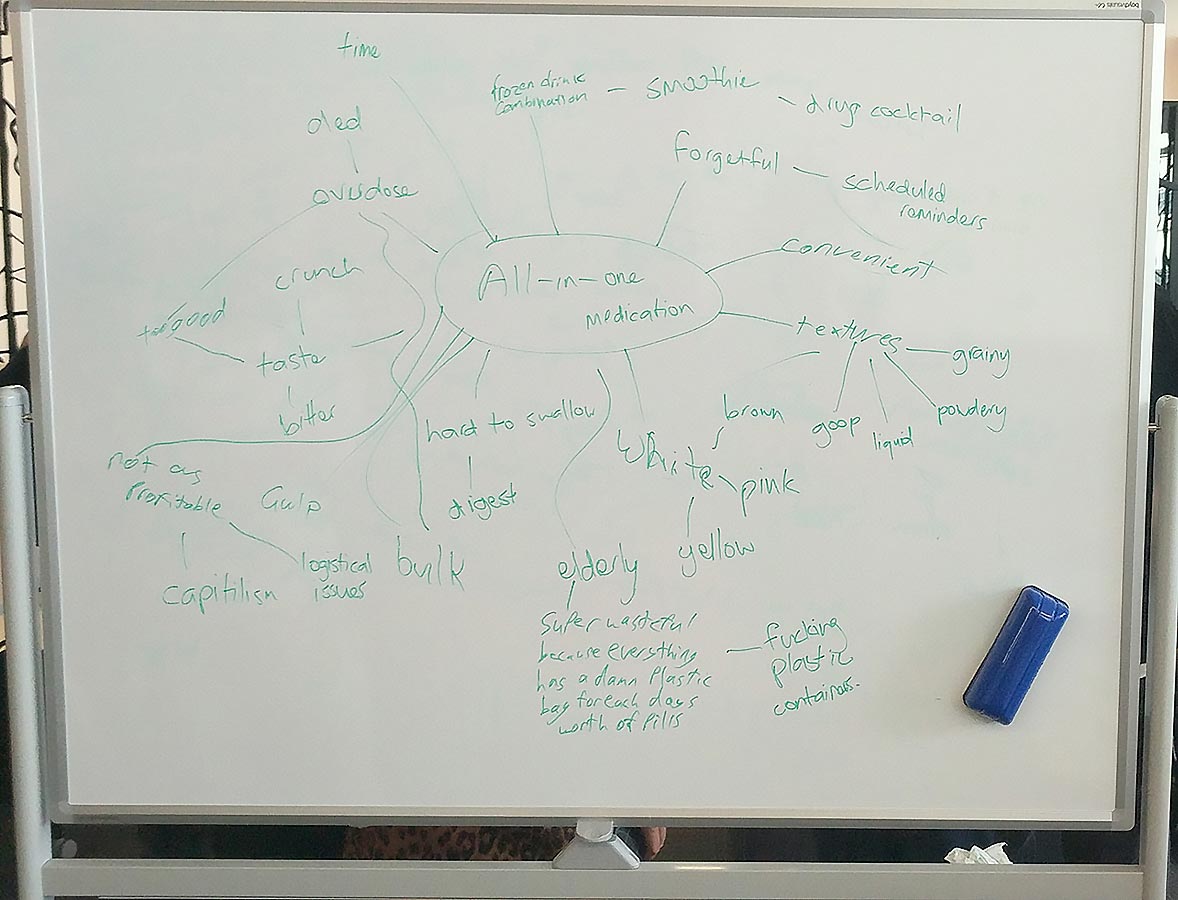 time
frozen drink
combination
smoothie
drug cocktail
ded
forgetful
overdose
scheduled
reminders
convenient
crunch
All-in-one
medication
too good
textures
taste
grainy
brown
goop
liquid
powdery
bitter
hard to swallow
white
pink
not as
Profitable
Gulp
digest
yellow
logistical
issues
bulk
elderly
capitilism
Super wasteful
because everything
has a damn Plastic
bag for each days
worth of Pills
fucking
plastic
containers.